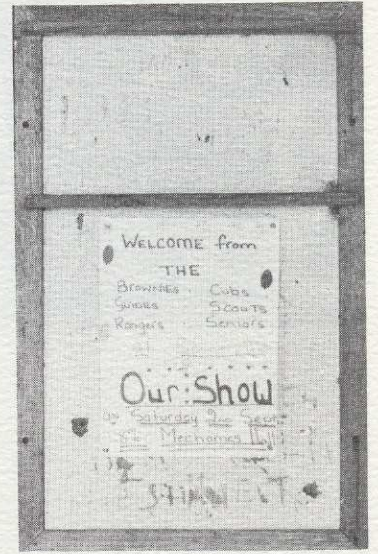 WELCOME from
THE
BROWNIES Cubs
GUIDES SCOUTS
Rangers Seniors
Our Show
Saturday
Mechanics